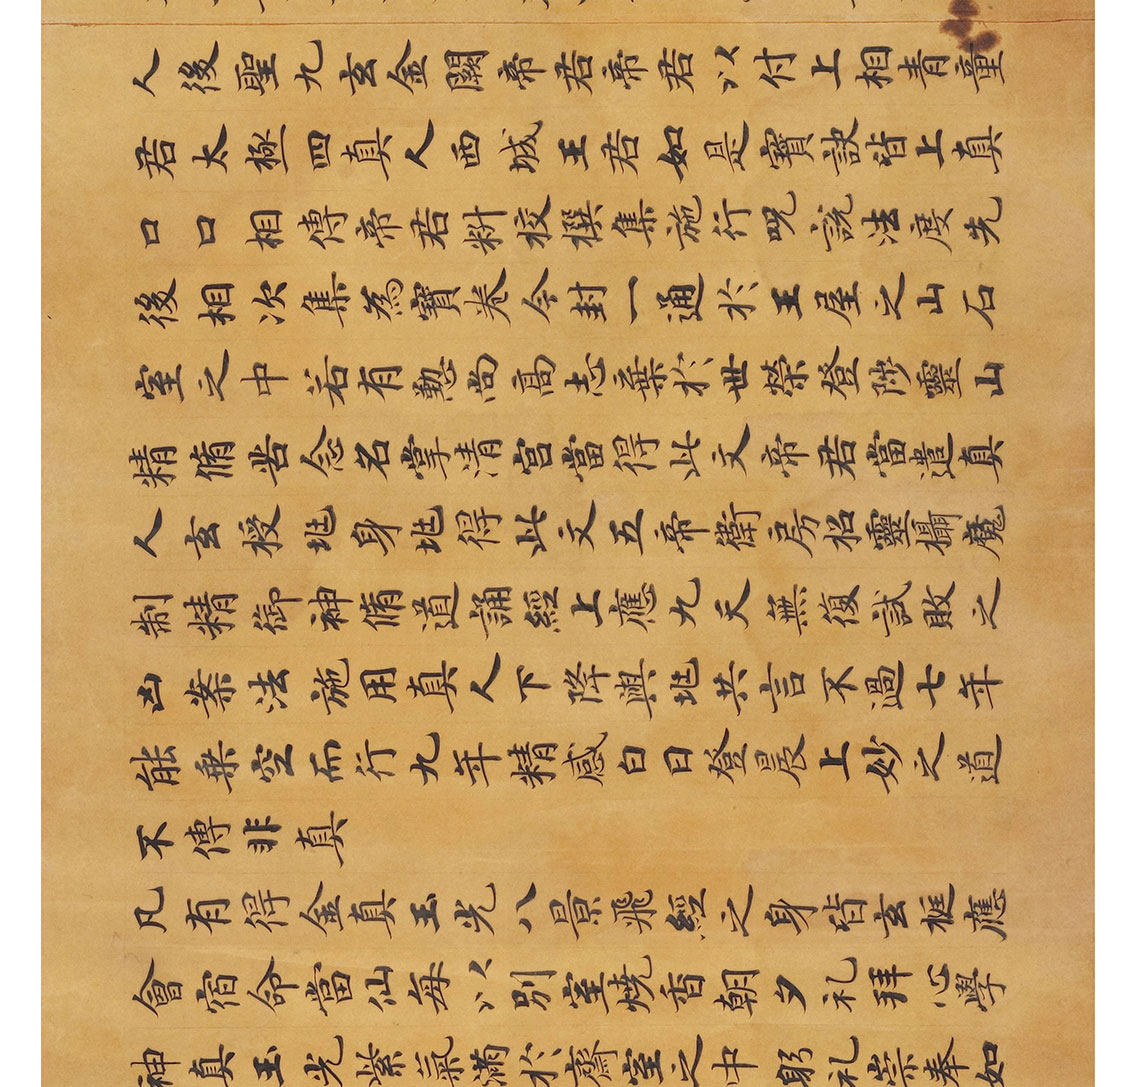 人後聖九玄金闕帝君帝君以付上相青童
君太極四真人西城王君如是寶訣皆上真
口口相傳帝君料校撰集施行呪說法度先
後相次集為寶卷令封一通於王屋之山石
室之中若有懃尚高志棄於世榮登陟靈山
精脩苦念名掌清宮當得此文帝君當遣真
人玄授兆身兆得此文五帝衛房招靈攝魔
制精御神脩道誦經上應九天無復試敗之
凶案法施用真人下降與兆共言不過七年
能乘空而行九年精感白日登晨上妙之道
不傳非真
凡有得金真玉光八景飛經之身皆玄挺應
會宿命當仙每以別室燒香朝夕礼拜心學
神真玉光紫氣滿於齋室之中躬礼崇奉如